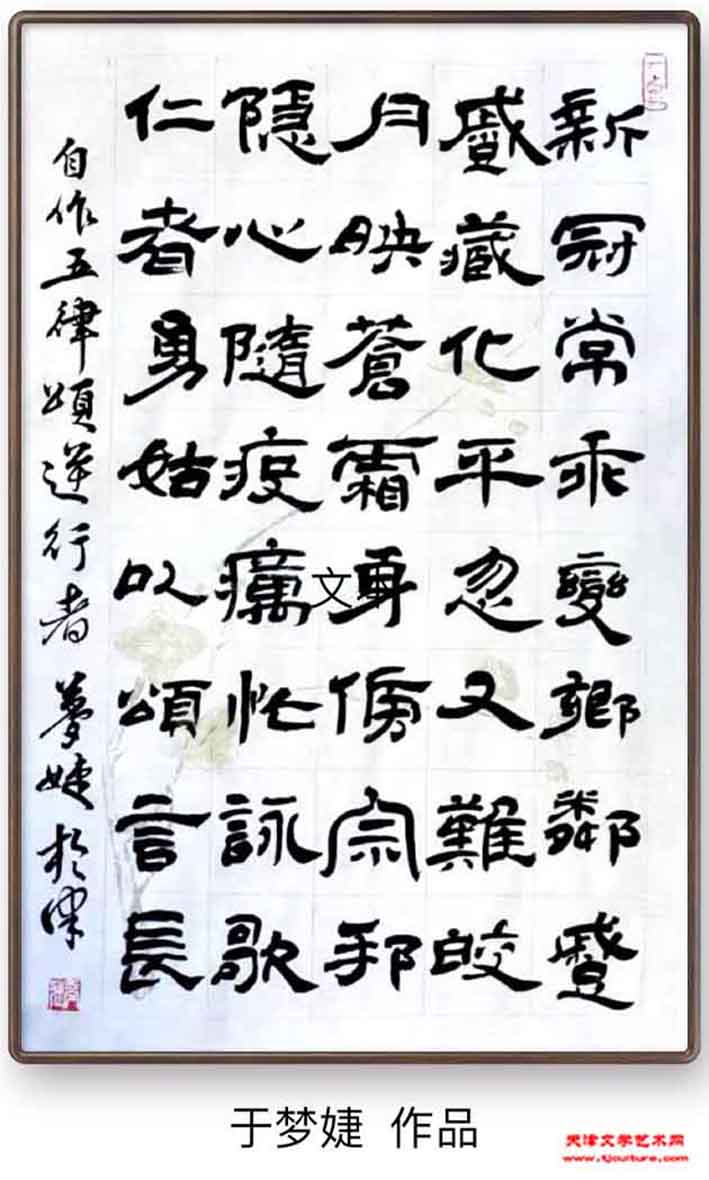 新冠常乖變鄉鄰蹙
蹙藏化平忽又難皎
月映蒼霜身傍宗邦
隱心隨疫癘忙詠歌
仁者勇姑以頌言長
自作五律頌逆行者 夢婕於津
于梦婕 作品
天津文学艺术网
www.tjculture.com